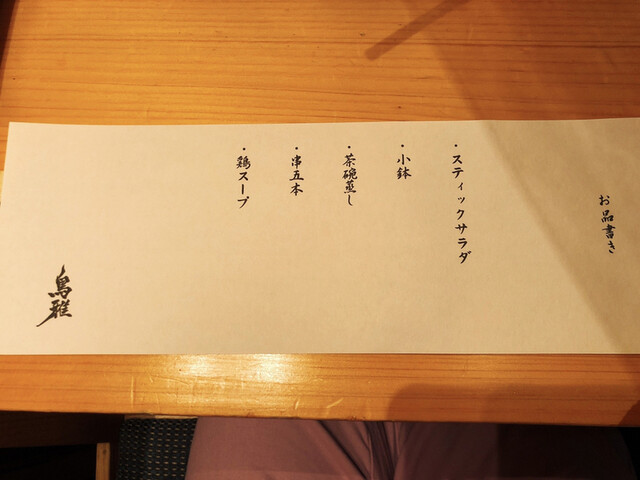 お品書き
・スティックサラダ
・小鉢
・茶碗蒸し
・串五本
・鶏スープ
鳥雅